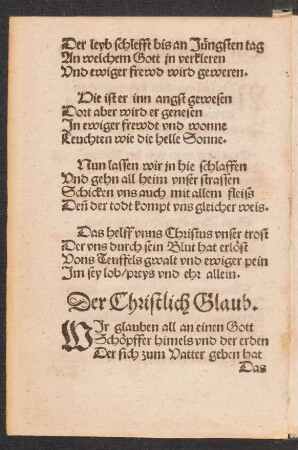 Der leyb schlefft bis an Jüngsten tag
An welchem Gott jn verkleren
Vnd ewiger frewd wird geweren.
Hie ist er inn angst gewesen
Dort aber wird er genesen
In ewiger frewdt vnd wonne
Leuchten wie die helle Sonne.
Nun lassen wir jn hie schlaffen
Vnd gehn all heim vnser strassen
Schicken vns auch mit allem fleiß
Deñ der todt kompt vns gleicher weis.
Das helff vnns Christus vnser trost
Der vns durch sein Blut hat erlöst
Vons Teuffels gwalt vnd ewiger pein
Im sey lob/preys vnd ehr allein.
Der Christlich Glaub.
WIr glauben all an einen Gott
Schöpffer himels vnd der erden
Der sich zum Vatter geben hat
Das